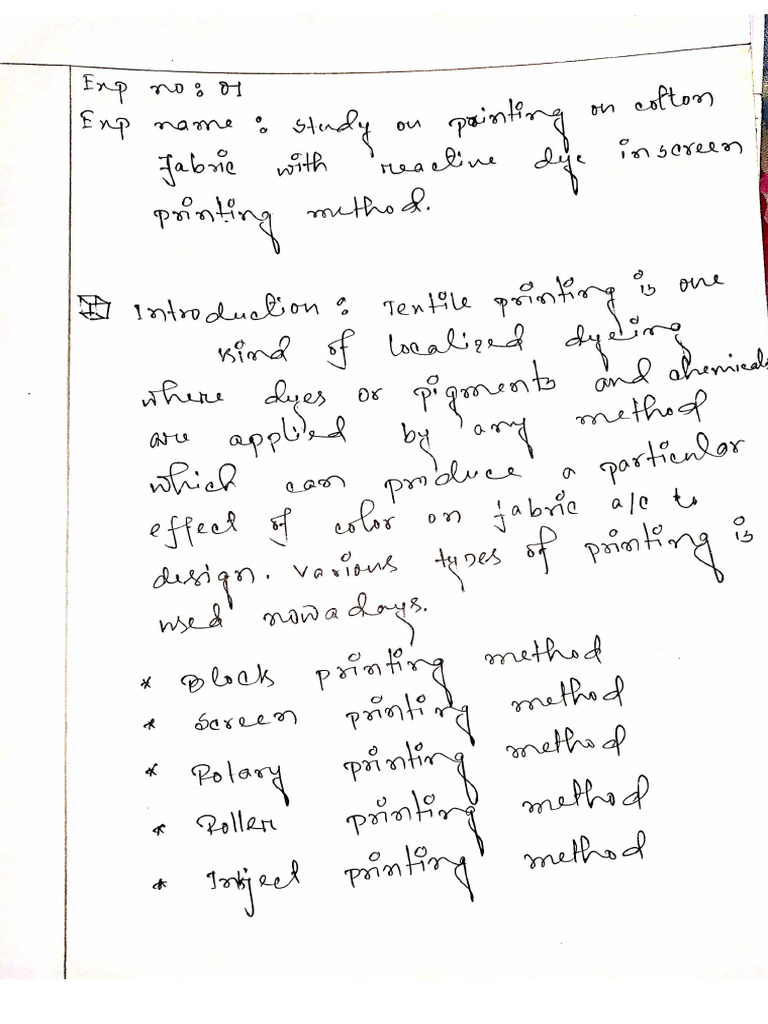 Exp no: 01
Exp name: study on printing on cotton
fabric with reactive dye in screen
printing method.
Introduction: Textile printing is one
kind of localized dyeing
where dyes or pigments and chemicals
are applied by any method
which can produce a particular
effect of color on fabric a/c to
design. various types of printing is
used nowadays.
* Block printing method
* Screen printing method
* Rotary printing method
* Roller printing method
* Inkject printing method